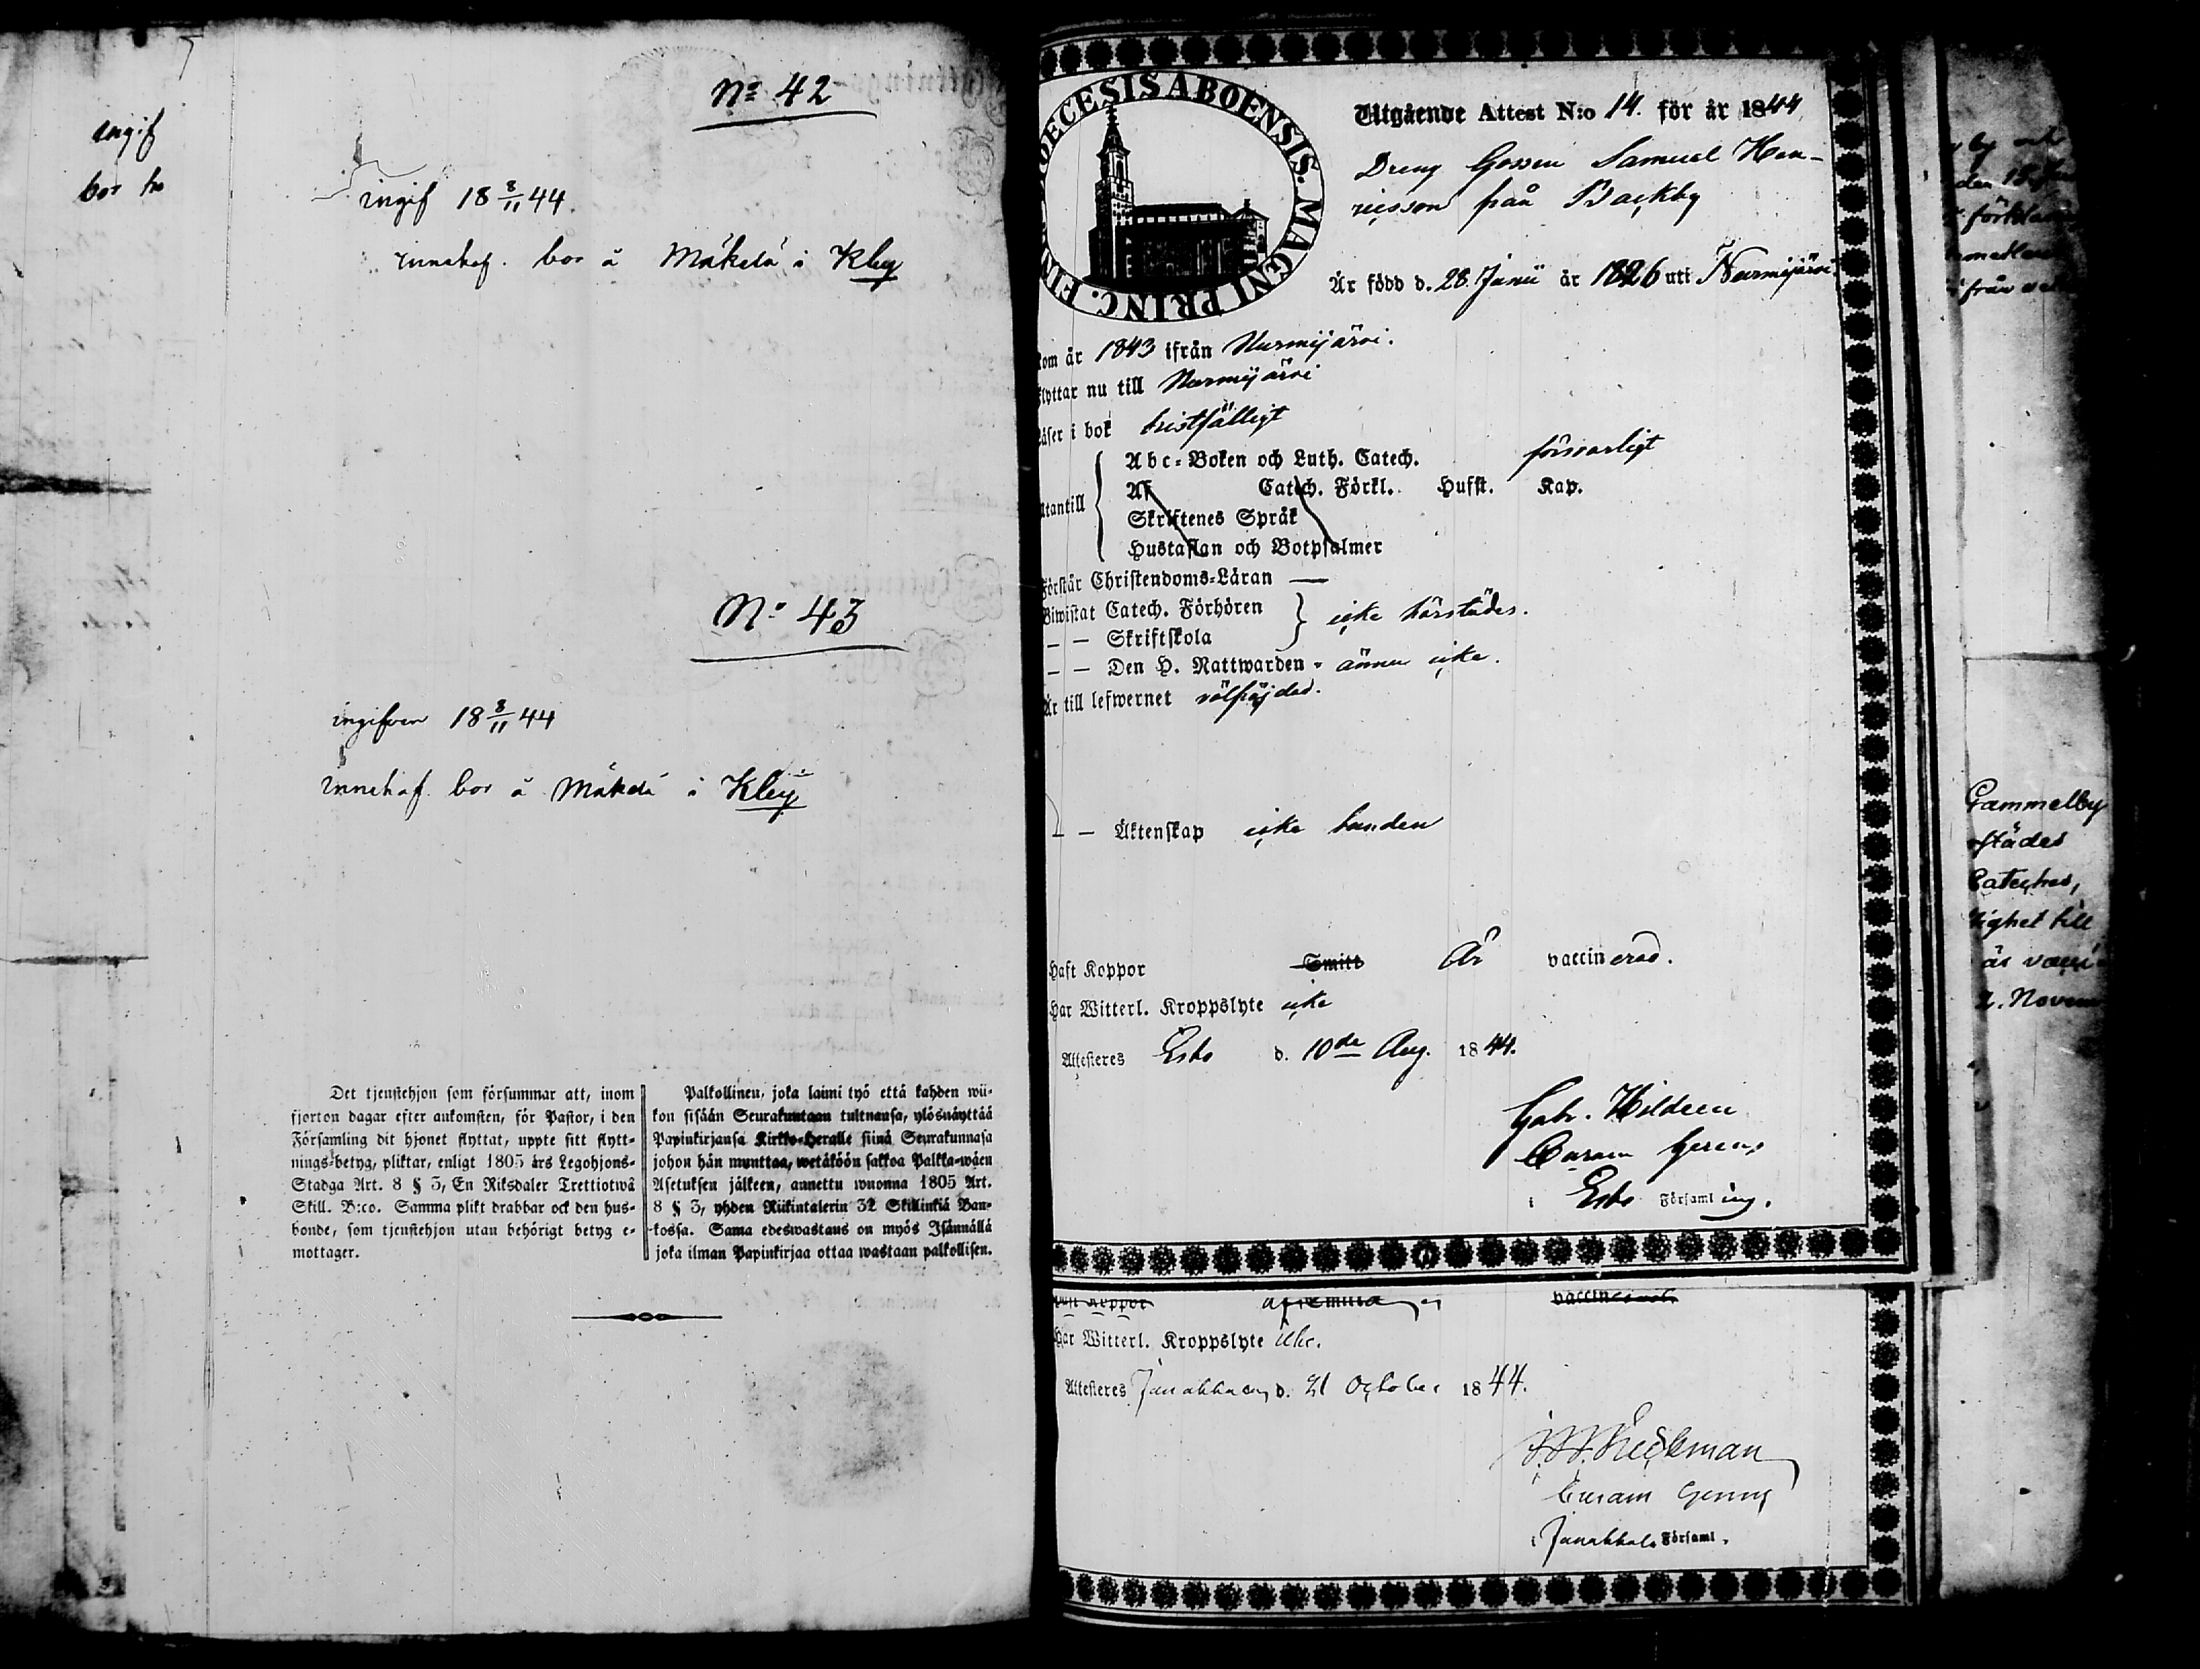 ingif
bor
No 42
ingif 18 8/11 44.
innehaf. bor å Mäkelä i Kley
No 43
ingifven 18 8/11 44
innehaf. bor å Mäkelä i Kley
Det tjenstehjon som försummar att, inom
fjorton dagar efter ankomsten, för Pastor, i den
Församling dit hjonet flyttat, uppte sitt flytt-
nings-betyg, pliktar, enligt 1805 års Legohjons-
Stadga Art. 8 § 3, En Riksdaler Trettiotwå
Skill. B:co. Samma plikt drabbar ock den hus-
bonde, som tjenstehjon utan behörigt betyg e-
mottager.
Palkollinen, joka laimi lyö että kahden wii-
kon sisään Seurakuntaan tultuansa, ylösnäyttää
Papinkirjansa Kirkko-Heralle siinä Seurakunnasa
johon hän muuttaa, wetäköön sakkoa Palkka-wäen
Asetuksen jälkeen, annettu wuonna 1805 Art.
8 § 3, yhden Riikintalerin 32 Skillinkiä Ban-
kossa. Sama edeswastaus on myös Isännällä
joka ilman Papinkirjaa ottaa wastaan palkollisen.
DIOECESIS ABOENSIS. MAGNI PRINC. FIN
Utgående Attest N:o 14. för år 1844
Dreng Gossen Samuel Hen-
ricsson från Backby
Är född d. 28 Junii år 1826 uti Nurmijärvi
Kom år 1843 ifrån Nurmijärvi.
Flyttar nu till Nurmijärvi
Läser i bok bristfälligt
Utantill
Abc-Boken och Luth. Catech. försvarligt
Af Catech. Förkl. Hufst. Kap.
Skriftenes Språk
Hustaflan och Botpsalmer
Förstår Christendoms-Läran —
Biwistat Catech. Förhören
— — Skriftskola
icke härstädes.
— — Den H. Nattwarden - ännu icke.
Är till lefwernet välfrejdad.
— — Äktenskap icke bunden
Haft Koppor Smitt Är vaccinerad.
Har Witterl. Kroppslyte icke
Attesteres Esbo d. 10de Aug. 1844.
Gabr. Hildeen
Curam Gerens
i Esbo Församling.
Haft Koppor vaccinerad.
Har Witterl. Kroppslyte icke.
Attesteres d. 21 October 1844.
Curam Gerens
i Janakkala Församl.
förklar
från
Gammelby
städes
Cateches,
lighet till
är vacci
2. Novem